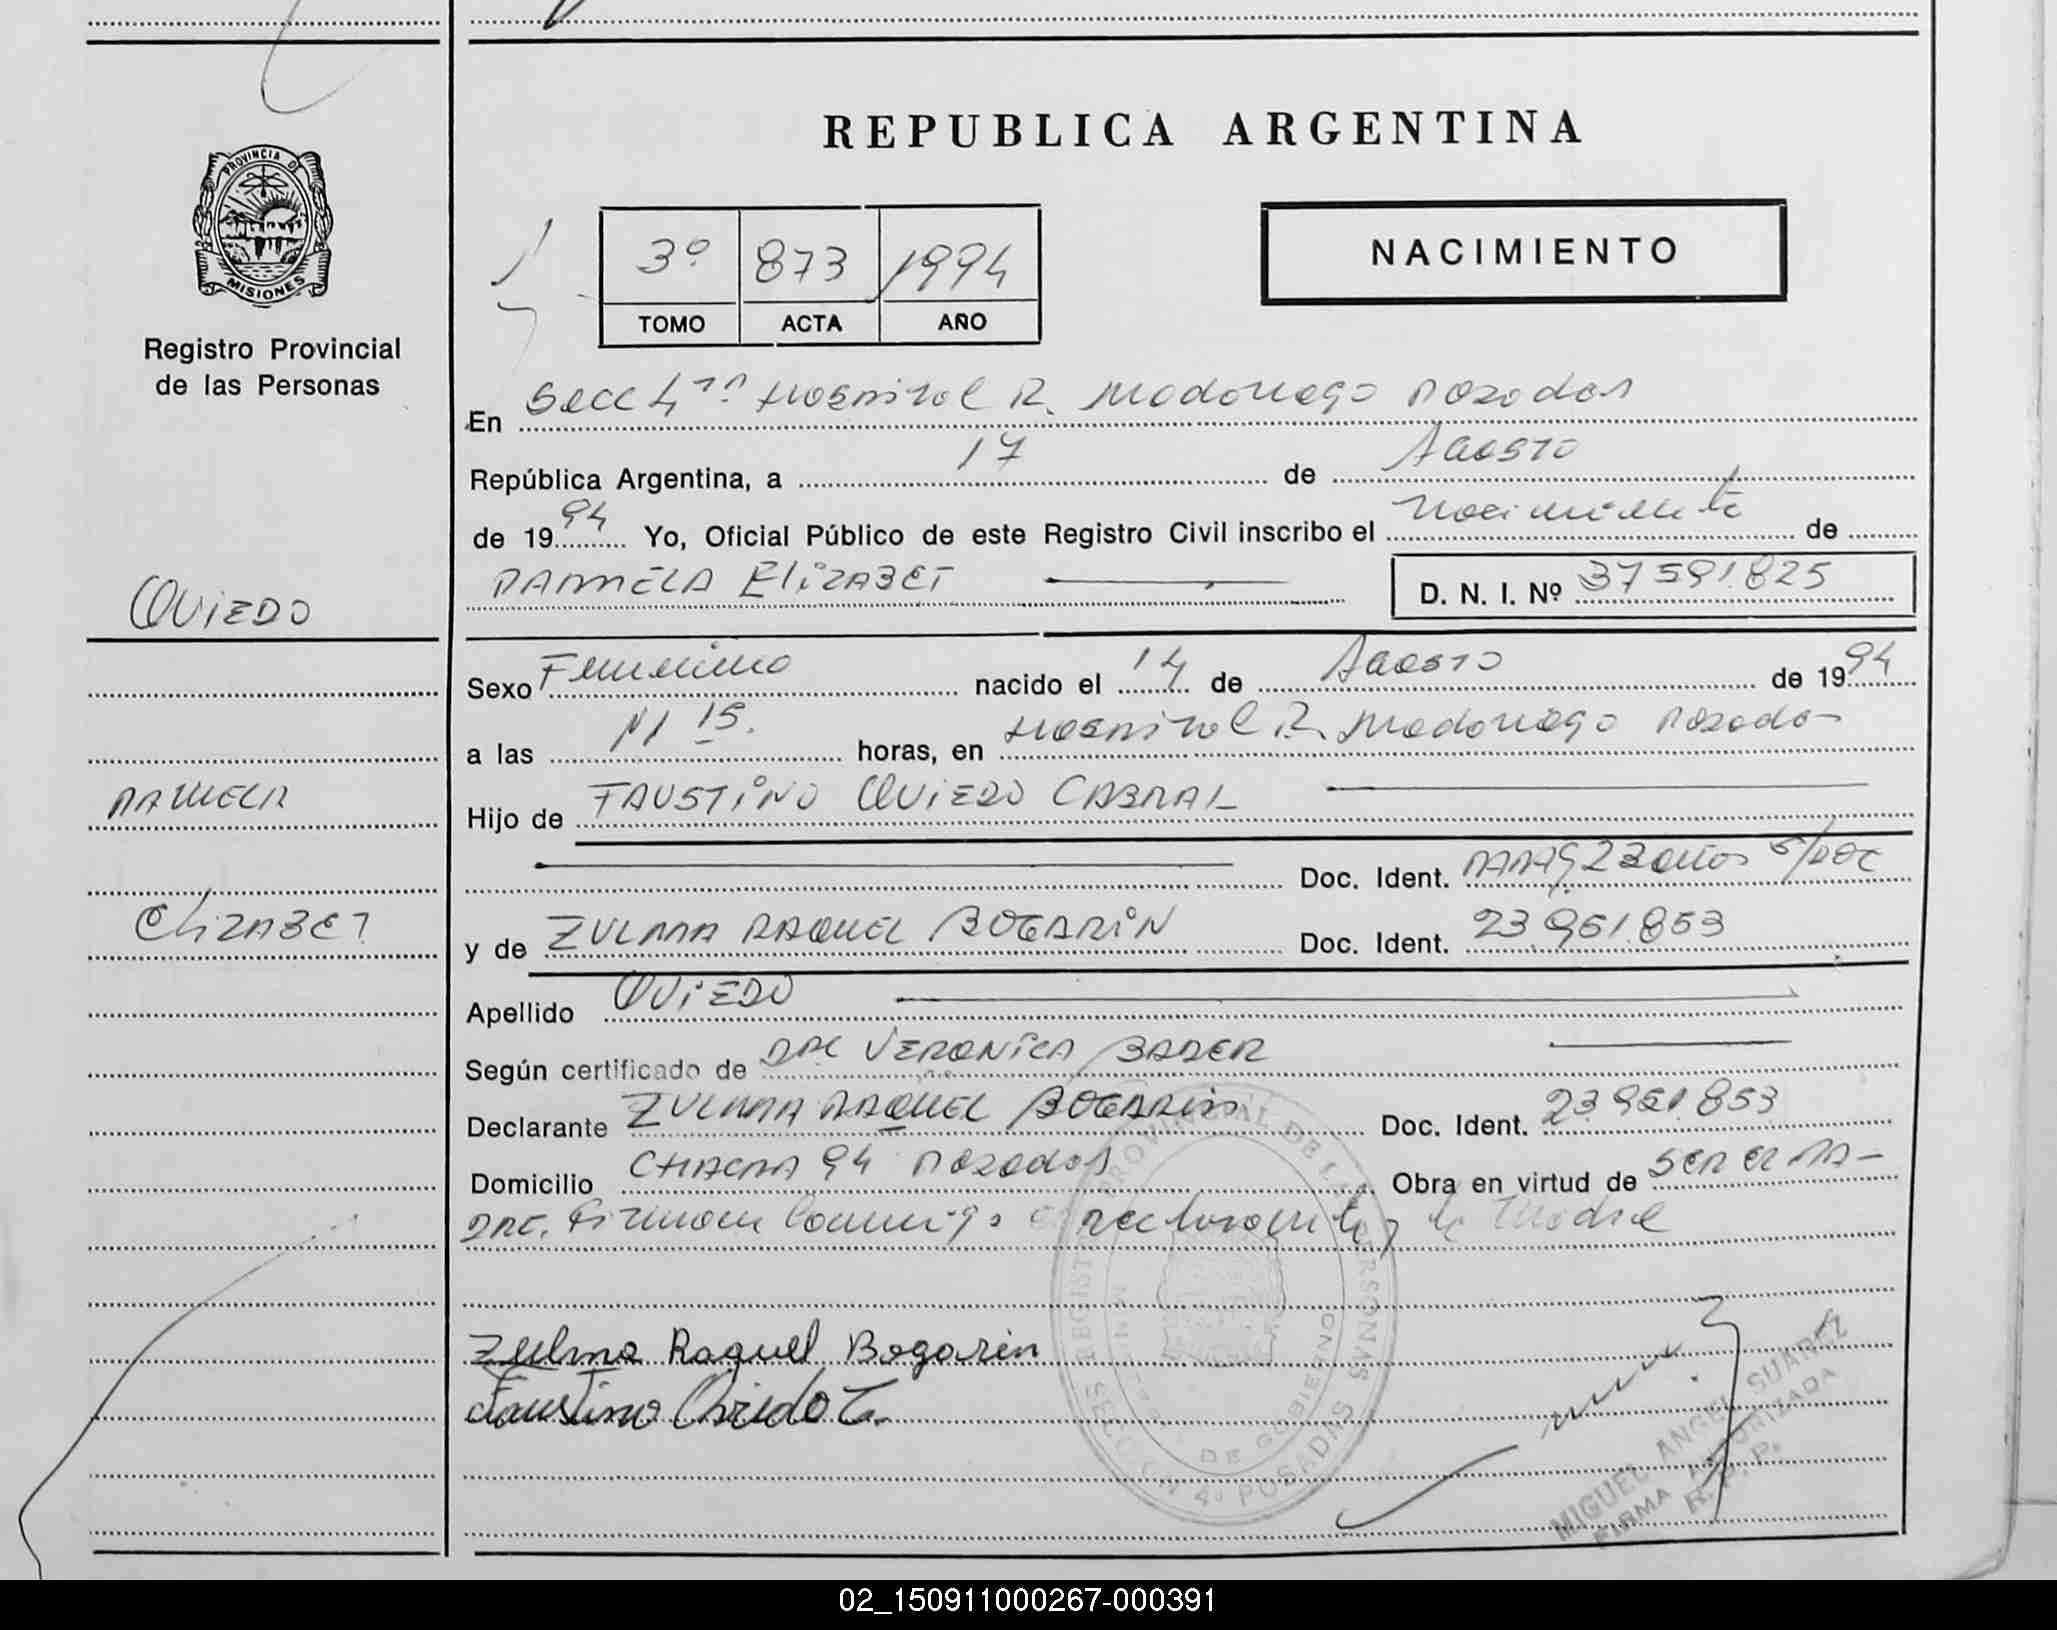 REPUBLICA ARGENTINA
PROVINCIA DE
MISIONES
Registro Provincial
de las Personas
3º 873 1994
TOMO ACTA AÑO
NACIMIENTO
En Secc 4ª Hospital R. Madariaga Posadas
República Argentina, a 17 de Agosto
de 1994 Yo, Oficial Público de este Registro Civil inscribo el nacimiento de
PAMELA ELIZABET D. N. I. Nº 37591825
OVIEDO
PAMELA
ELIZABET
Sexo Femenino nacido el 14 de Agosto de 1994
a las 15. horas, en Hospital R. Madariaga Posadas
Hijo de FAUSTINO OVIEDO CABRAL
Doc. Ident. PARAG 23 años S/DOC
y de ZULMA RAQUEL BOGARIN Doc. Ident. 23.951.853
Apellido OVIEDO
Según certificado de DRA VERONICA BADER
Declarante ZULMA RAQUEL BOGARIN Doc. Ident. 23.951.853
Domicilio CHACRA 94 Posadas Obra en virtud de SER EL PA-
DRE. Firman Conmigo el declarante y la Madre
Zulma Raquel Bogarin
Faustino Oviedo C.
REGISTRO PROVINCIAL DE LAS PERSONAS
SECCION 4º POSADAS
DE GOBIERNO
MIGUEL ANGEL SUAREZ
FIRMA AUTORIZADA
R. P. P.
02_150911000267-000391